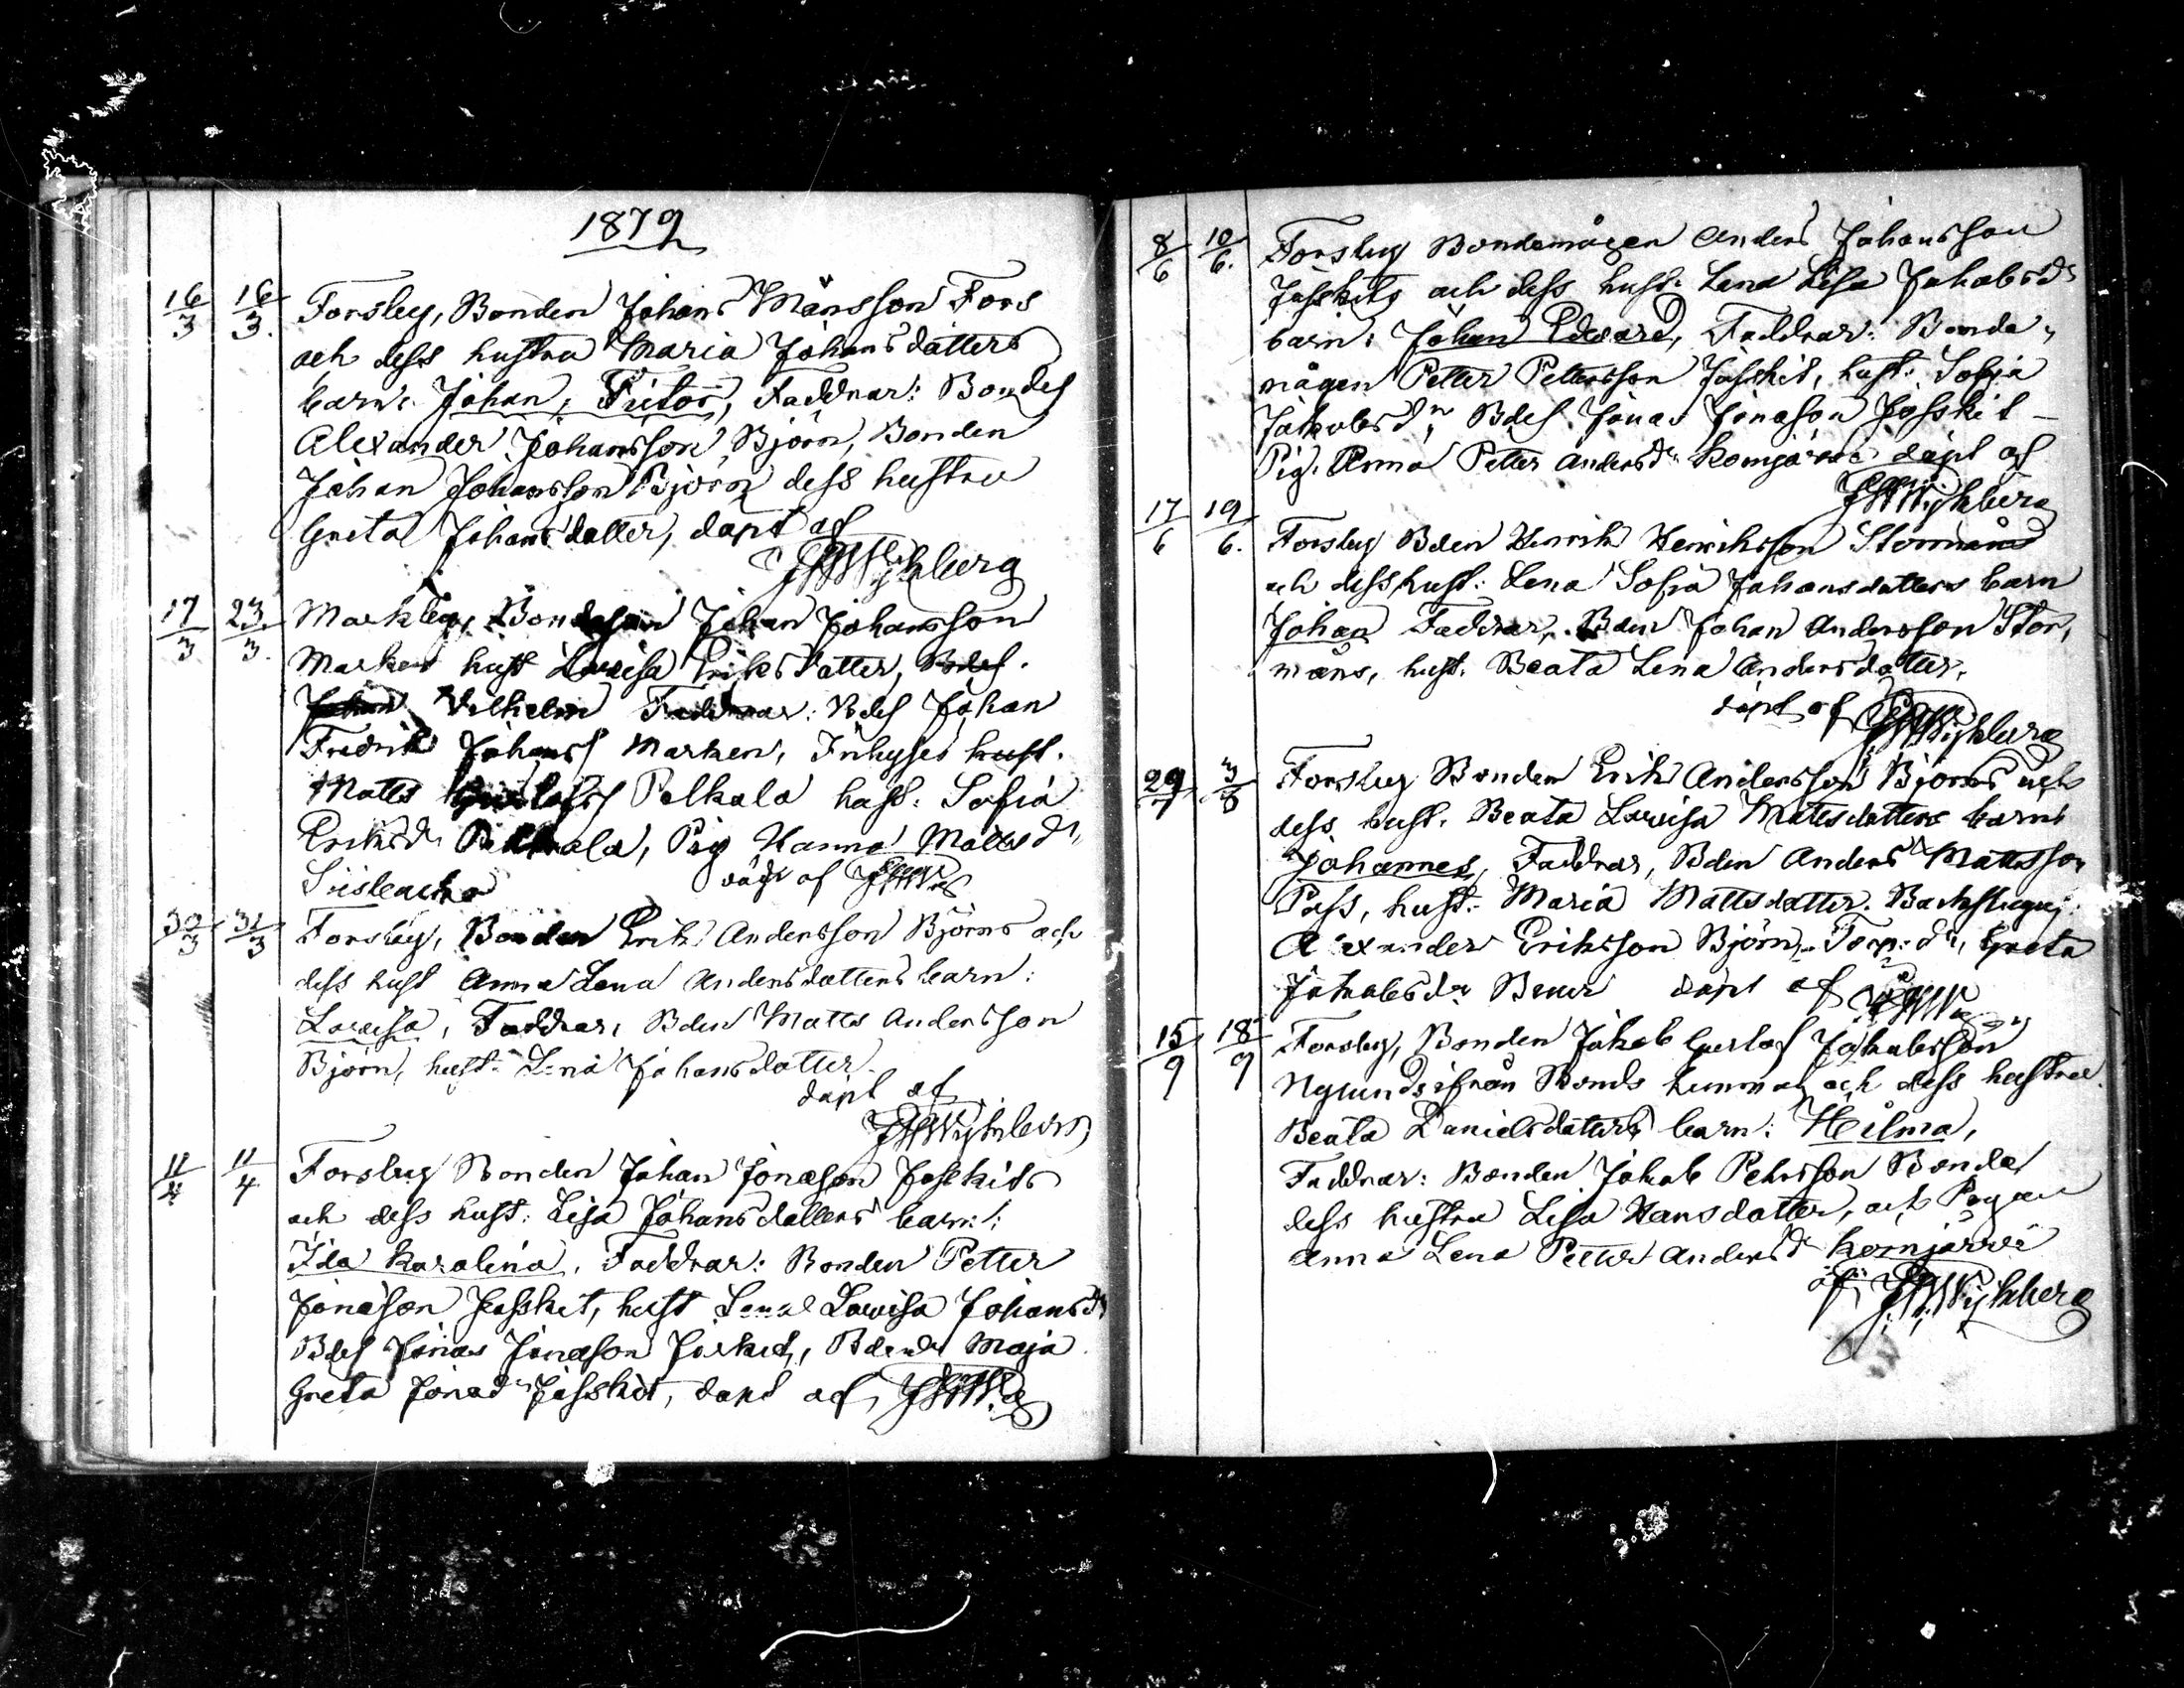 1879
16/3 16/3. Forsby, Bonden Johan Månsson Fors
och dess hustru Maria Johansdatters
barn: Johan, Faddrar: Bondes
Alexander Johansson Björn, Bonden
Johan Johansson Björn dess hustru
Greta Johansdatter, döpt af
JHWijkberg
17/3 23/3. Markby, Bondeson Johan Johansson
Marken hust Lovisa Eriksdatter,
Vilhelm Faddrar: Bdes Johan
Fredrik Johanss Marken, Inhyses
Matts Gustafss Pelkala hust: Sofia
Eriksdr Pelkala, Pig Hanna Mattsdr
döpt af JHWbg
30/3 31/3 Forsby, Bonden Erik Andersson Björns och
dess hust Anna Lena Andersdatters barn:
Lovisa, Faddrar, Bden Matts Andersson
Björn, hust: Lena Johansdatter.
döpt af
JHWijkberg
11/4 11/4 Forsby Bonden Johan Jonasson Josskits
och dess hust: Lisa Johansdatters barn:
Ida Karolina, Faddrar: Bonden Petter
Jonasson Josskit, hust Lena Lovisa Johansdr
Bdes Jonas Jonasson Josket, Maja
Greta Jonasdr Josskit, döpt af, JHWbg
8/6 10/6. Forsby Bondemågen Anders Johansson
Josskits och dess hust: Lena Lisa Jakobsdr
barn: Johan Edvard, Faddrar: Bonde-
mågen Petter Pettersson Josskit, hust: Sofia
Jakobsdr, Bdes Jonas Jonasson Josskit –
Pig. Anna Petter Andersdr Komjärvi döpt af
JHWijkberg
17/6 19/6. Forsby Bden Henrik Henriksson Stormåns
och dess hust: Lena Sofia Johansdatters barn
Johan Faddrar, Bden Johan Andersson Stor,
måns, hust. Beata Lena Andersdatter,
döpt af JHWijkberg
29/7 3/8 Forsby Bonden Erik Andersson Björns och
dess hust. Beata Lovisa Mattsdatters barn
Johannes, Faddrar, Bden Anders Mattsson
Pass, hust: Maria Mattsdatter.
Alexander Eriksson Björn, Torp: dr, Greta
Jakobsdr döpt af JHWbg
15/9 18/9 Forsby, Bonden Jakob Gustaf Jakobsson
Nylunds ifrån Bonds hemman och dess hustru
Beata Danielsdatters barn: Hilma,
Faddrar: Bonden Jakob Pehrsson Bonde
dess hustru Lisa Hansdatter, och Pigan
Anna Lena Petter Andersdr Komjärvi
af JHWijkberg